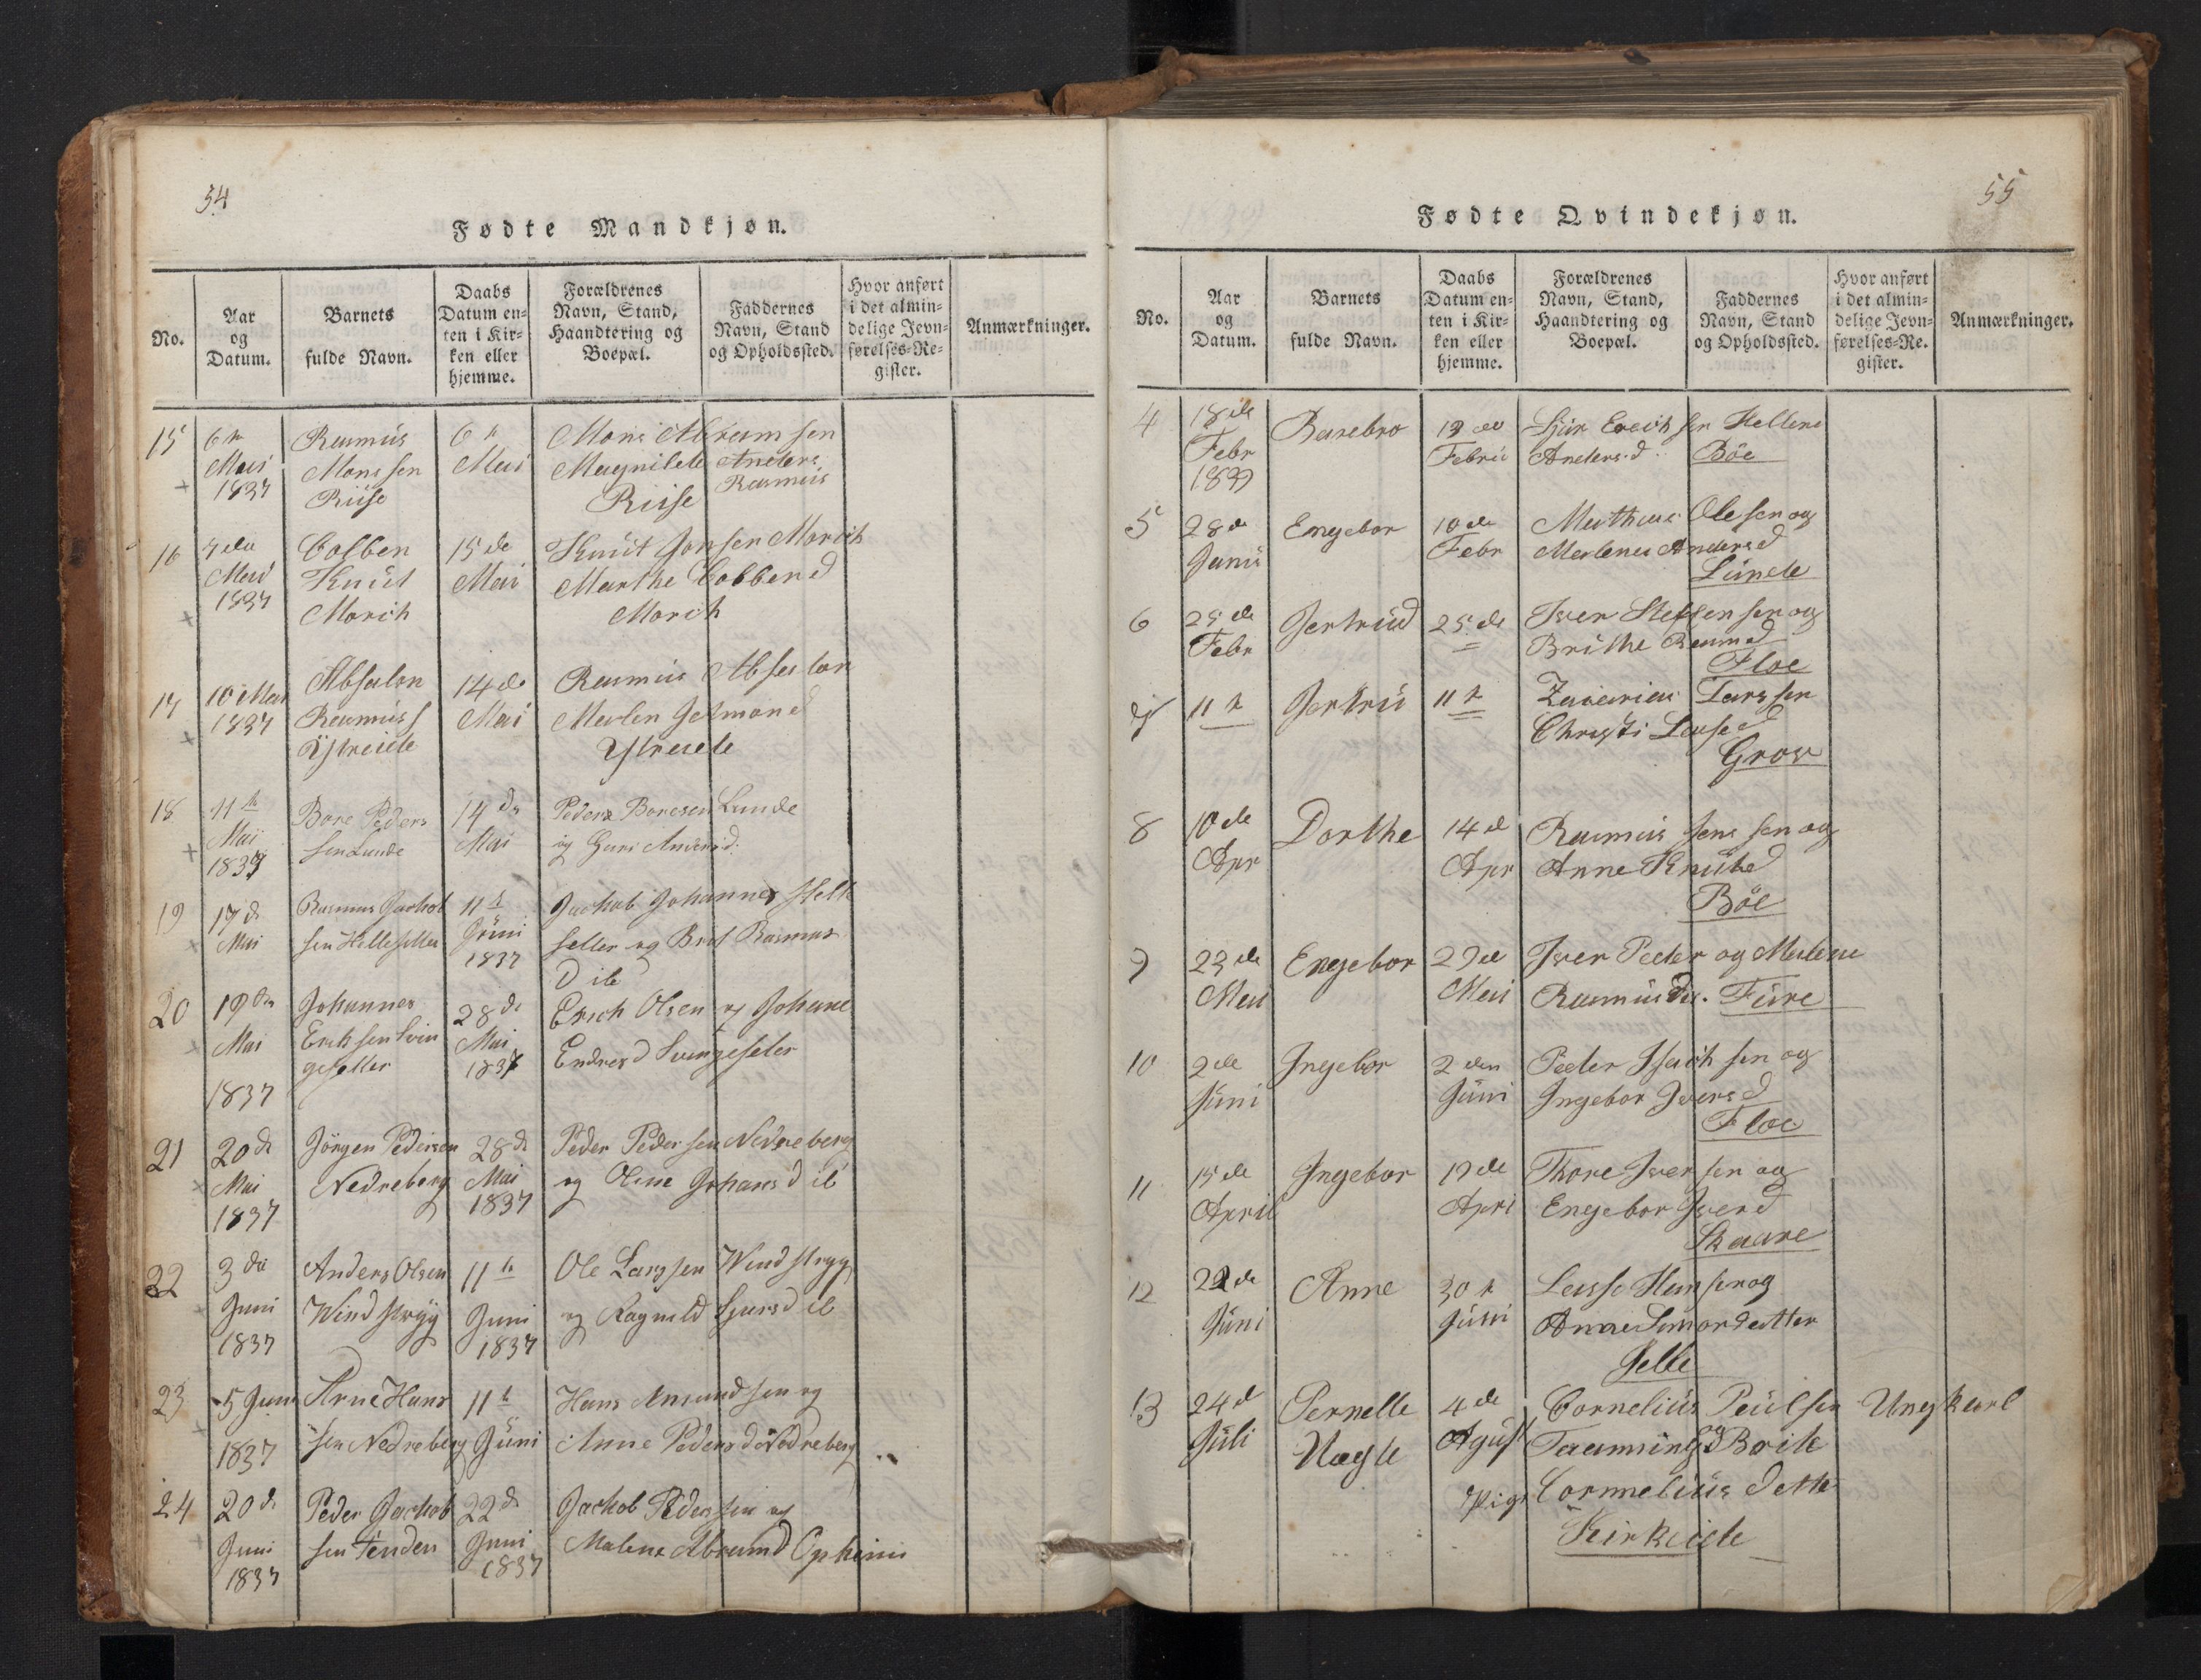 54
Fødte Mandkjøn.
No.
Aar
og
Datum.
Barnets
fulde Navn.
Daabs
Datum en-
ten i Kir-
ken eller
hjemme.
Forældrenes
Navn, Stand,
Haandtering og
Boepæl.
Faddernes
Navn, Stand
og Opholdssted.
Hvor anført
i det almin-
delige Jevn-
førelses-Re-
gister.
Anmærkninger.
15
6te
Mai
1837
Rasmus
Mons sen
Riise
6te
Mai
Mons Abram sen
Magnilde Anders
Rasmus
Riise
16
7de
Mai
1837
Colben
Knut
Morich
15de
Mai
Knut Jonsen Morich
Marthe Colben d
Morich
17
10 Mai
1837
Absalon
Rasmus s
Ystreide
14de
Mai
Rasmus Absalon
Malen d
Ystreide
18
11te
Mai
1837
Bore Peders
sen Lunde
14de
Mai
Peder Boresen Lunde
og Guri Anders d.
19
17de
Mai
Rasmus Jachob
sen Helleseller
11te
Juni
1837
Jachob Johannes Helle
seller og Brit Rasmus
D ib
20
19de
Mai
1837
Johannes
Eriksen Svin
geseller
28de
Mai
1837
Erich Olsen og Johane
Endres d Svingeseter
21
20de
Mai
1837
Jörgen Pedersen
Nedreberg
28de
Mai
1837
Peder Pedersen Nedreberg
og Oline Johans d ib
22
3die
Juni
1837
Anders Olsen
Windstryg
11te
Juni
1837
Ole Larssen Windstryg
og Ragnild Sjurs d ib
23
5 Juni
1837
Arne Hans
sen Nedreberg
11te
Juni
Hans Amundsen og
Anne Peders d Nedreberg
24
20de
Juni
1837
Peder Jachob
sen Tenden
22de
Juni
1837
Jachob Pedersen og
Malene Abram d Opheim
55
Fødte Qvindekjøn.
No.
Aar
og
Datum.
Barnets
fulde Navn.
Daabs
Datum en-
ten i Kir-
ken eller
hjemme.
Forældrenes
Navn, Stand,
Haandtering og
Boepæl.
Faddernes
Navn, Stand
og Opholdssted.
Hvor anført
i det almin-
delige Jevn-
førelses-Re-
gister.
Anmærkninger.
4
18de
Febr
1837
Barebro
19de
Febru
Sjur Erich sen Hellene
Anders d.
Böe
5
28de
Janu
Engebor
10de
Febr
Mathias Olesen og
Malene Anders d
Lunde
6
25de
Febr
Jertrud
25de
Iver Steffensen og
Brithe Rasm d
Floe
7
11te
Jertru
11te
Zacarias Lars sen
Christi Lasse d
Grov
8
10de
Apr
Dorthe
14de
Apr
Rasmus Jens sen og
Anne Knut d
Böe
9
23de
Mai
Engebor
29de
Mai
Iver Peder og Malene
Rasmus Da. Fure
10
2de
Juni
Ingebor
2den
Juni
Peder Isach sen og
Ingebor Ivers d
Floe
11
15de
April
Ingebor
19de
Apri
Thore Iver sen og
Engebor Iver d
Skaare
12
22de
Juni
Anne
30te
Juni
Lasse Hansen og
Anne Simon datter
Selle
13
24d
Juli
Pernelle
Hagle
4de
Agust
Cornelius Paulsen Ungkarl
Taaming og Brite
Pige Cornnelius Datter
Kirkeide